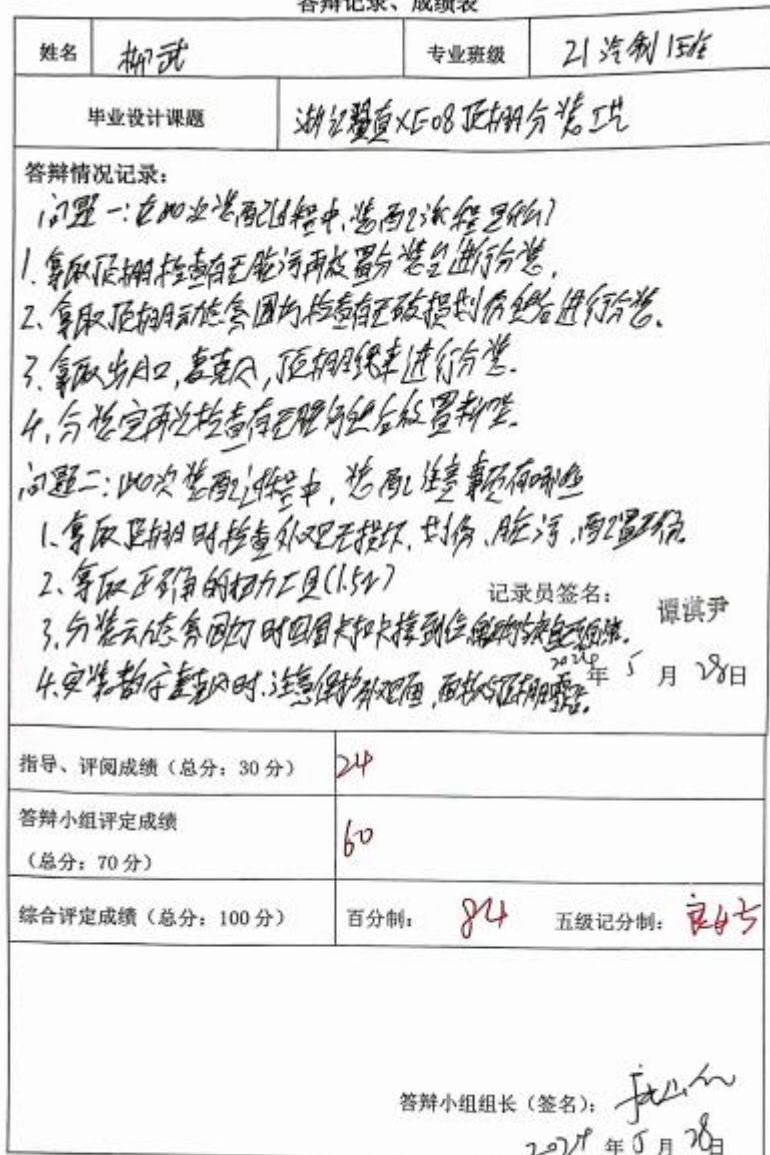 答辩记录、成绩表
姓名 柳武 专业班级 21汽制1班
毕业设计课题 浙江翼真XE08顶棚分装工艺
答辩情况记录：
问题一：在此次装配过程中，装配流程是什么？
1.拿取顶棚检查有无脏污再放置分装台进行分装。
2、拿取顶棚动态氛围灯检查有无破损划伤然后进行分装。
3.拿取出风口，麦克风，顶棚线束进行分装.
4.分装完再次检查有无脏污然后放置料架.
问题二：此次装配过程中，装配注意事项有哪些
1.拿取顶棚时检查外观无损坏、划伤、脏污，配置正确.
2、拿取正确的扭力工具(1.5N)
记录员签名： 谭淇尹
3.分装动态氛围灯时四周卡扣卡接到位
2024年5月28日
4.安装数字麦克风时.注意保护外观面，面板与顶棚
指导、评阅成绩（总分：30分） 24
答辩小组评定成绩 60
（总分：70分）
综合评定成绩（总分：100分） 百分制： 84 五级记分制： 良好
答辩小组组长（签名）：
2024年5月28日